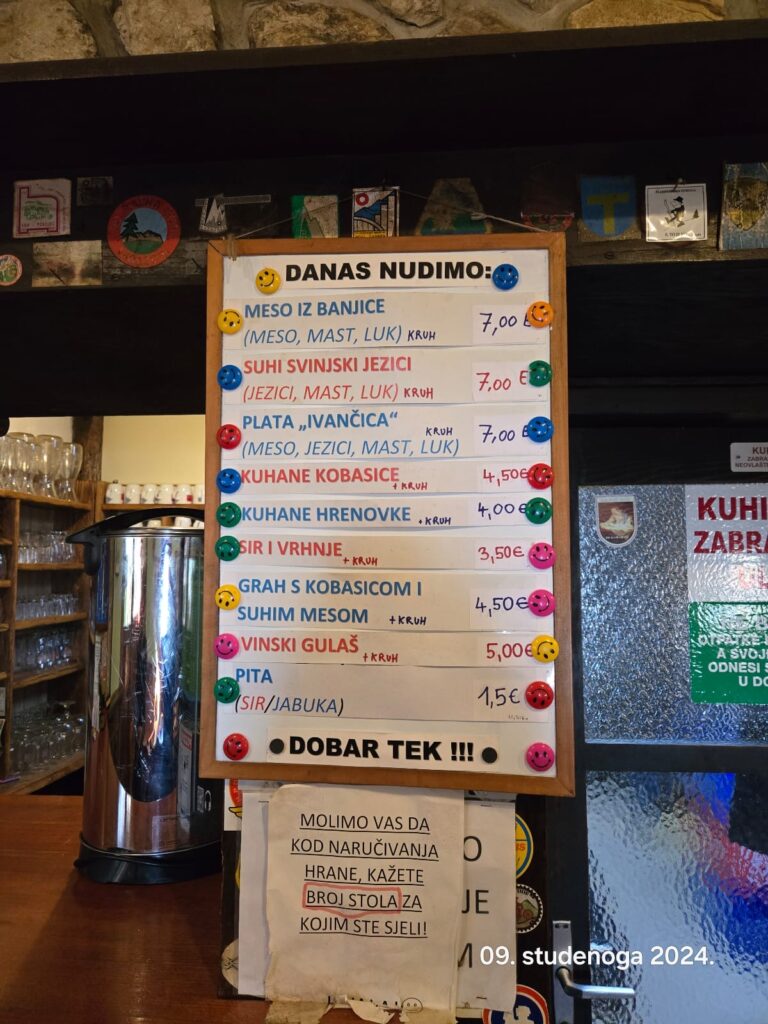 DANAS NUDIMO:
MESO IZ BANJICE
(MESO, MAST, LUK) KRUH 7,00 €
SUHI SVINJSKI JEZICI
(JEZICI, MAST, LUK) KRUH 7,00 €
PLATA „IVANČICA“ KRUH
(MESO, JEZICI, MAST, LUK) 7,00 €
KUHANE KOBASICE + KRUH 4,50€
KUHANE HRENOVKE + KRUH 4,00€
SIR I VRHNJE + KRUH 3,50€
GRAH S KOBASICOM I
SUHIM MESOM + KRUH 4,50€
VINSKI GULAŠ + KRUH 5,00€
PITA
(SIR/JABUKA) 1,5€
DOBAR TEK !!!
MOLIMO VAS DA
KOD NARUČIVANJA
HRANE, KAŽETE
BROJ STOLA ZA
KOJIM STE SJELI!
KUHI
ZABRA
OTPATKE
A SVOJ
ODNESI S
U DO
09. studenoga 2024.